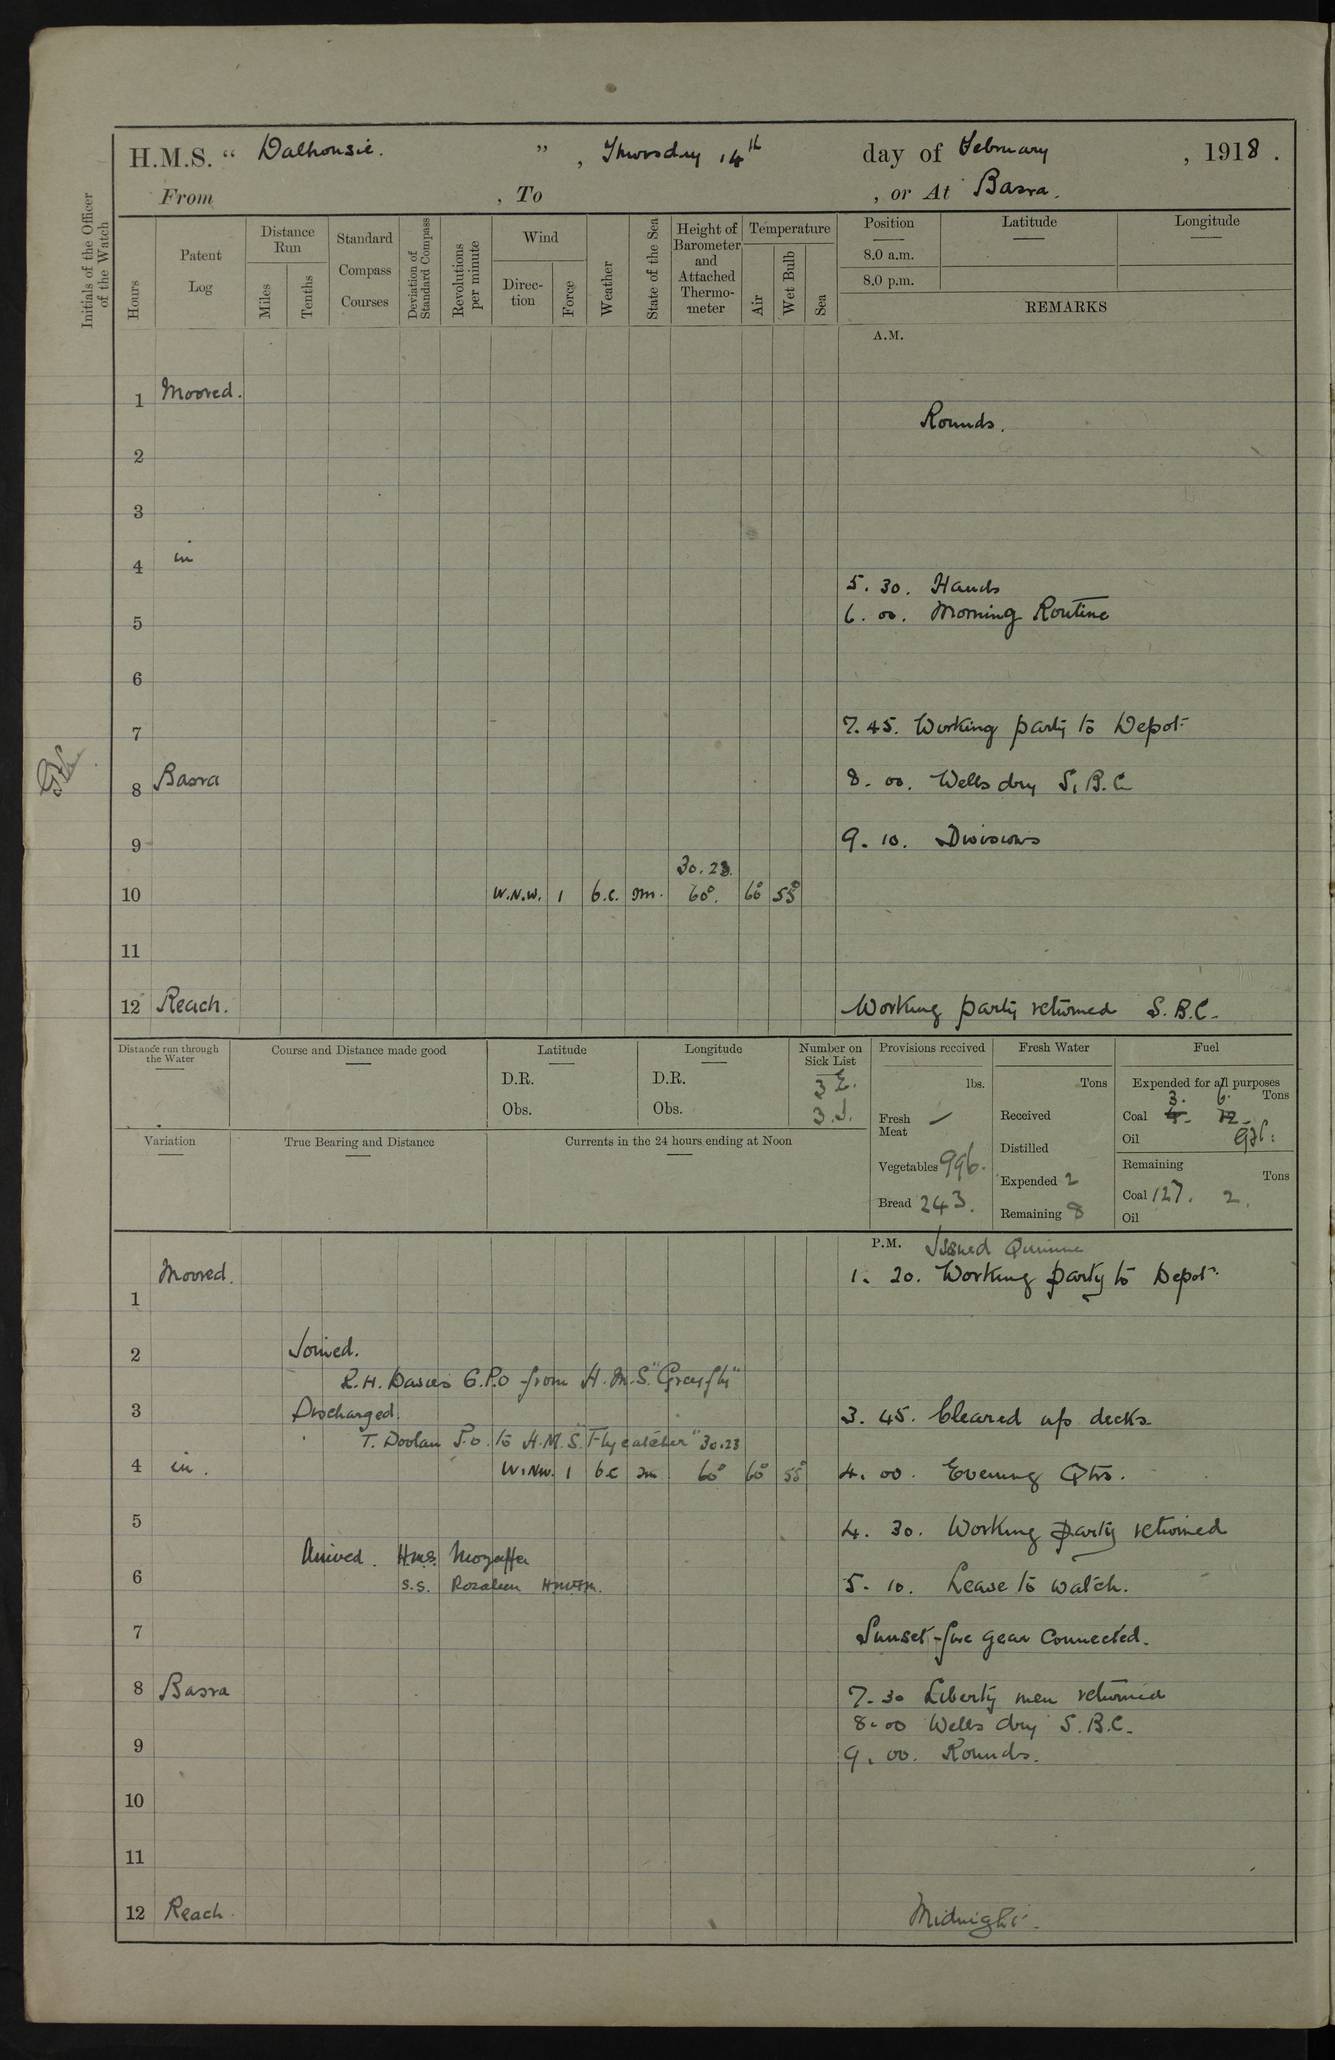 H.M.S. “ Dalhousie. ” , Thursday 14th day of February , 1918 .
From , To , or At Basra.
Initials of the Officer of the Watch
Hours
Patent Log
Distance Run
Miles
Tenths
Standard Compass Courses
Deviation of Standard Compass
Revolutions per minute
Wind
Direc-tion
Force
Weather
State of the Sea
Height of Barometer and Attached Thermo-meter
Temperature
Air
Wet Bulb
Sea
Position Latitude Longitude
8.0 a.m.
8.0 p.m.
REMARKS
A.M.
1 Moored.
Rounds.
2
3
4 in
5. 30. Hands
5 6. 00. Morning Routine
6
7 7. 45. Working party to Depot
8 Basra 8. 00. Wells dry S.B.C
9 9. 10. Divisions
30.23
10 W.N.W. 1 b.c. sm. 60°. 60° 55°
11
12 Reach. Working party returned S.B.C.
Distance run through the Water
Course and Distance made good
Latitude
D.R.
Obs.
Longitude
D.R.
Obs.
Number on Sick List
3 E.
3.I.
Provisions received
lbs.
Fresh Meat —
Vegetables 996.
Bread 243.
Fresh Water
Tons
Received
Distilled
Expended 2
Remaining 8
Fuel
Expended for all purposes
Tons
3. 6.
Coal 4. 12.
Oil
Remaining
Tons
Coal 127. 2.
Oil
Variation
True Bearing and Distance
Currents in the 24 hours ending at Noon
P.M. Issued Quinine
Moored. 1. 20. Working party to Depot
1
2 Joined.
R.H. Davies G.P.O from H.M.S. "Greyfly"
3 Discharged. 3. 45. Cleared up decks
T. Doolan P.O. to H.M.S. "Flycatcher" 30.23
4 in. W.NW. 1 b.c sm 60° 60° 55° 4. 00. Evening Qtrs.
5 4. 30. Working party returned
Arrived. H.M.S. Mozaffer
6 s.s. Rozaleen 5. 10. Leave to watch.
7 Sunset fire gear connected.
8 Basra 7. 30 Liberty men returned
8. 00 Wells dry S.B.C.
9 9. 00. Rounds.
10
11
12 Reach Midnight.